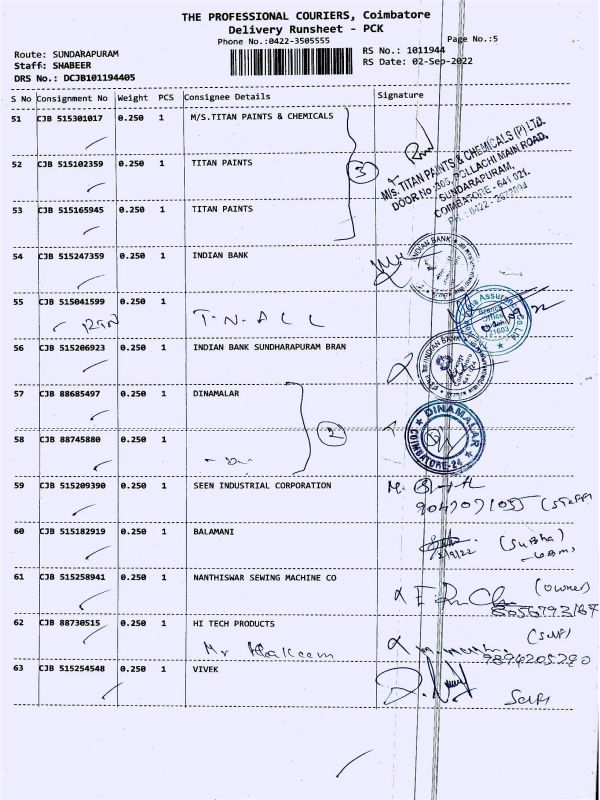 THE PROFESSIONAL COURIERS, Coimbatore
Delivery Runsheet - PCK
Phone No.:0422-3505555
Page No.:5
Route: SUNDARAPURAM
Staff: SHABEER
DRS No.: DCJB101194405
RS No.: 1011944
RS Date: 02-Sep-2022
S No Consignment No Weight PCS Consignee Details Signature
51 CJB 515301017 0.250 1 M/S.TITAN PAINTS & CHEMICALS
3
M/S. TITAN PAINTS & CHEMICALS (P) LTD.
DOOR No :305, POLLACHI MAIN ROAD,
SUNDARAPURAM,
COIMBATORE - 641 021.
52 CJB 515102359 0.250 1 TITAN PAINTS
53 CJB 515165945 0.250 1 TITAN PAINTS
54 CJB 515247359 0.250 1 INDIAN BANK
INDIAN BANK
55 CJB 515041599 0.250 1
T.N. ALL
56 CJB 515206923 0.250 1 INDIAN BANK SUNDHARAPURAM BRAN
INDIAN BANK
57 CJB 88685497 0.250 1 DINAMALAR
2
DINAMALAR
COIMBATORE-24
58 CJB 88745880 0.250 1
59 CJB 515209390 0.250 1 SEEN INDUSTRIAL CORPORATION
(Staff)
60 CJB 515182919 0.250 1 BALAMANI
(Subha)
2/9/22
61 CJB 515258941 0.250 1 NANTHISWAR SEWING MACHINE CO
(owner)
62 CJB 88730515 0.250 1 HI TECH PRODUCTS
Mr Hakeem
9894205290
63 CJB 515254548 0.250 1 VIVEK